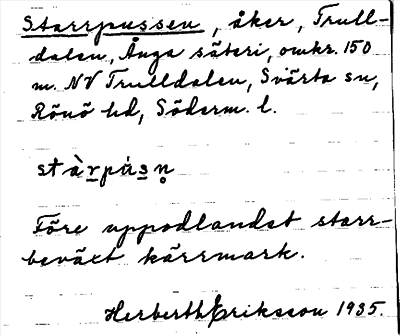 Starrpussen, åker, Trull-
dalen, Ånga säteri, omkr. 150
m. NV Trulldalen, Svärta sn,
Rönö hd, Söderm. l.
stàrpásn̥
Före uppodlandet starr-
beväxt kärrmark.
Herberth Eriksson 1935.